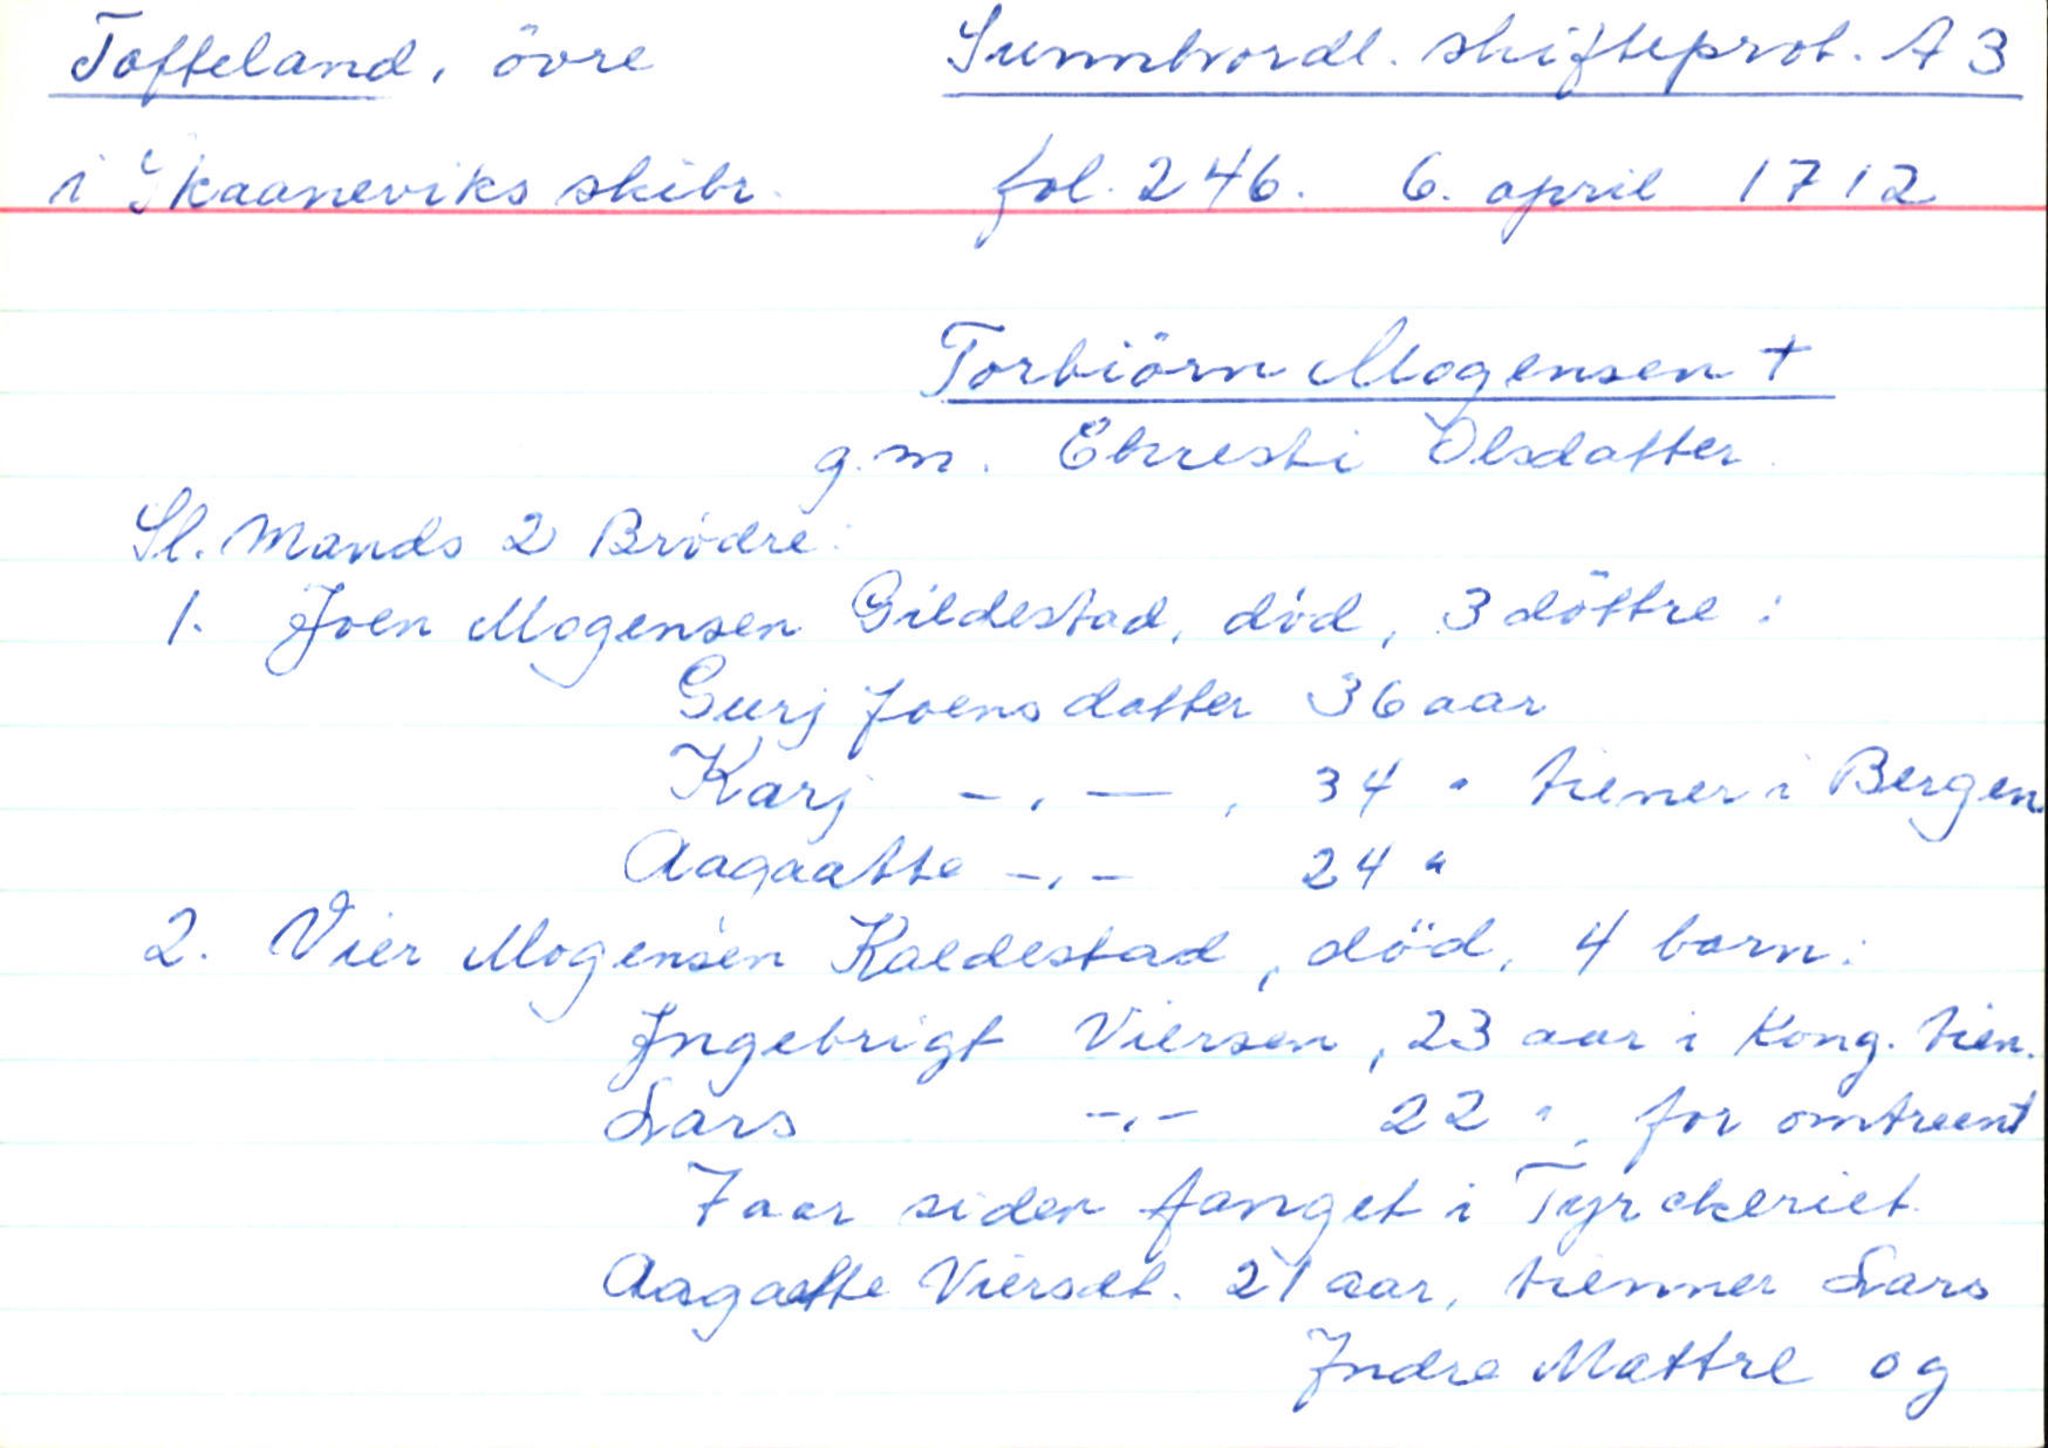 Tofteland, övre Sunnhordl. skifteprot. A 3
i Skaaneviks skibr. fol. 246. 6. april 1712
Torbiörn Mogensen †
g.m. Chresti Olsdatter.
Sl. Mands 2 Brødre:
1. Joen Mogensen Gildestad, död, 3 döttre:
Gurj Joensdatter 36 aar
Karj -,- , 34 " tiener i Bergen
Aagaatte -,- 24 "
2. Vier Mogensen Kaldestad, död, 4 barn:
Ingebrigt Viersen, 23 aar i Kong. tien.
Lars -,- 22 ", for omtreent
7 aar siden fanget i Tyrckeriet.
Aagaatte Viersdt. 21 aar, tienner Lars
Indre Mattre og